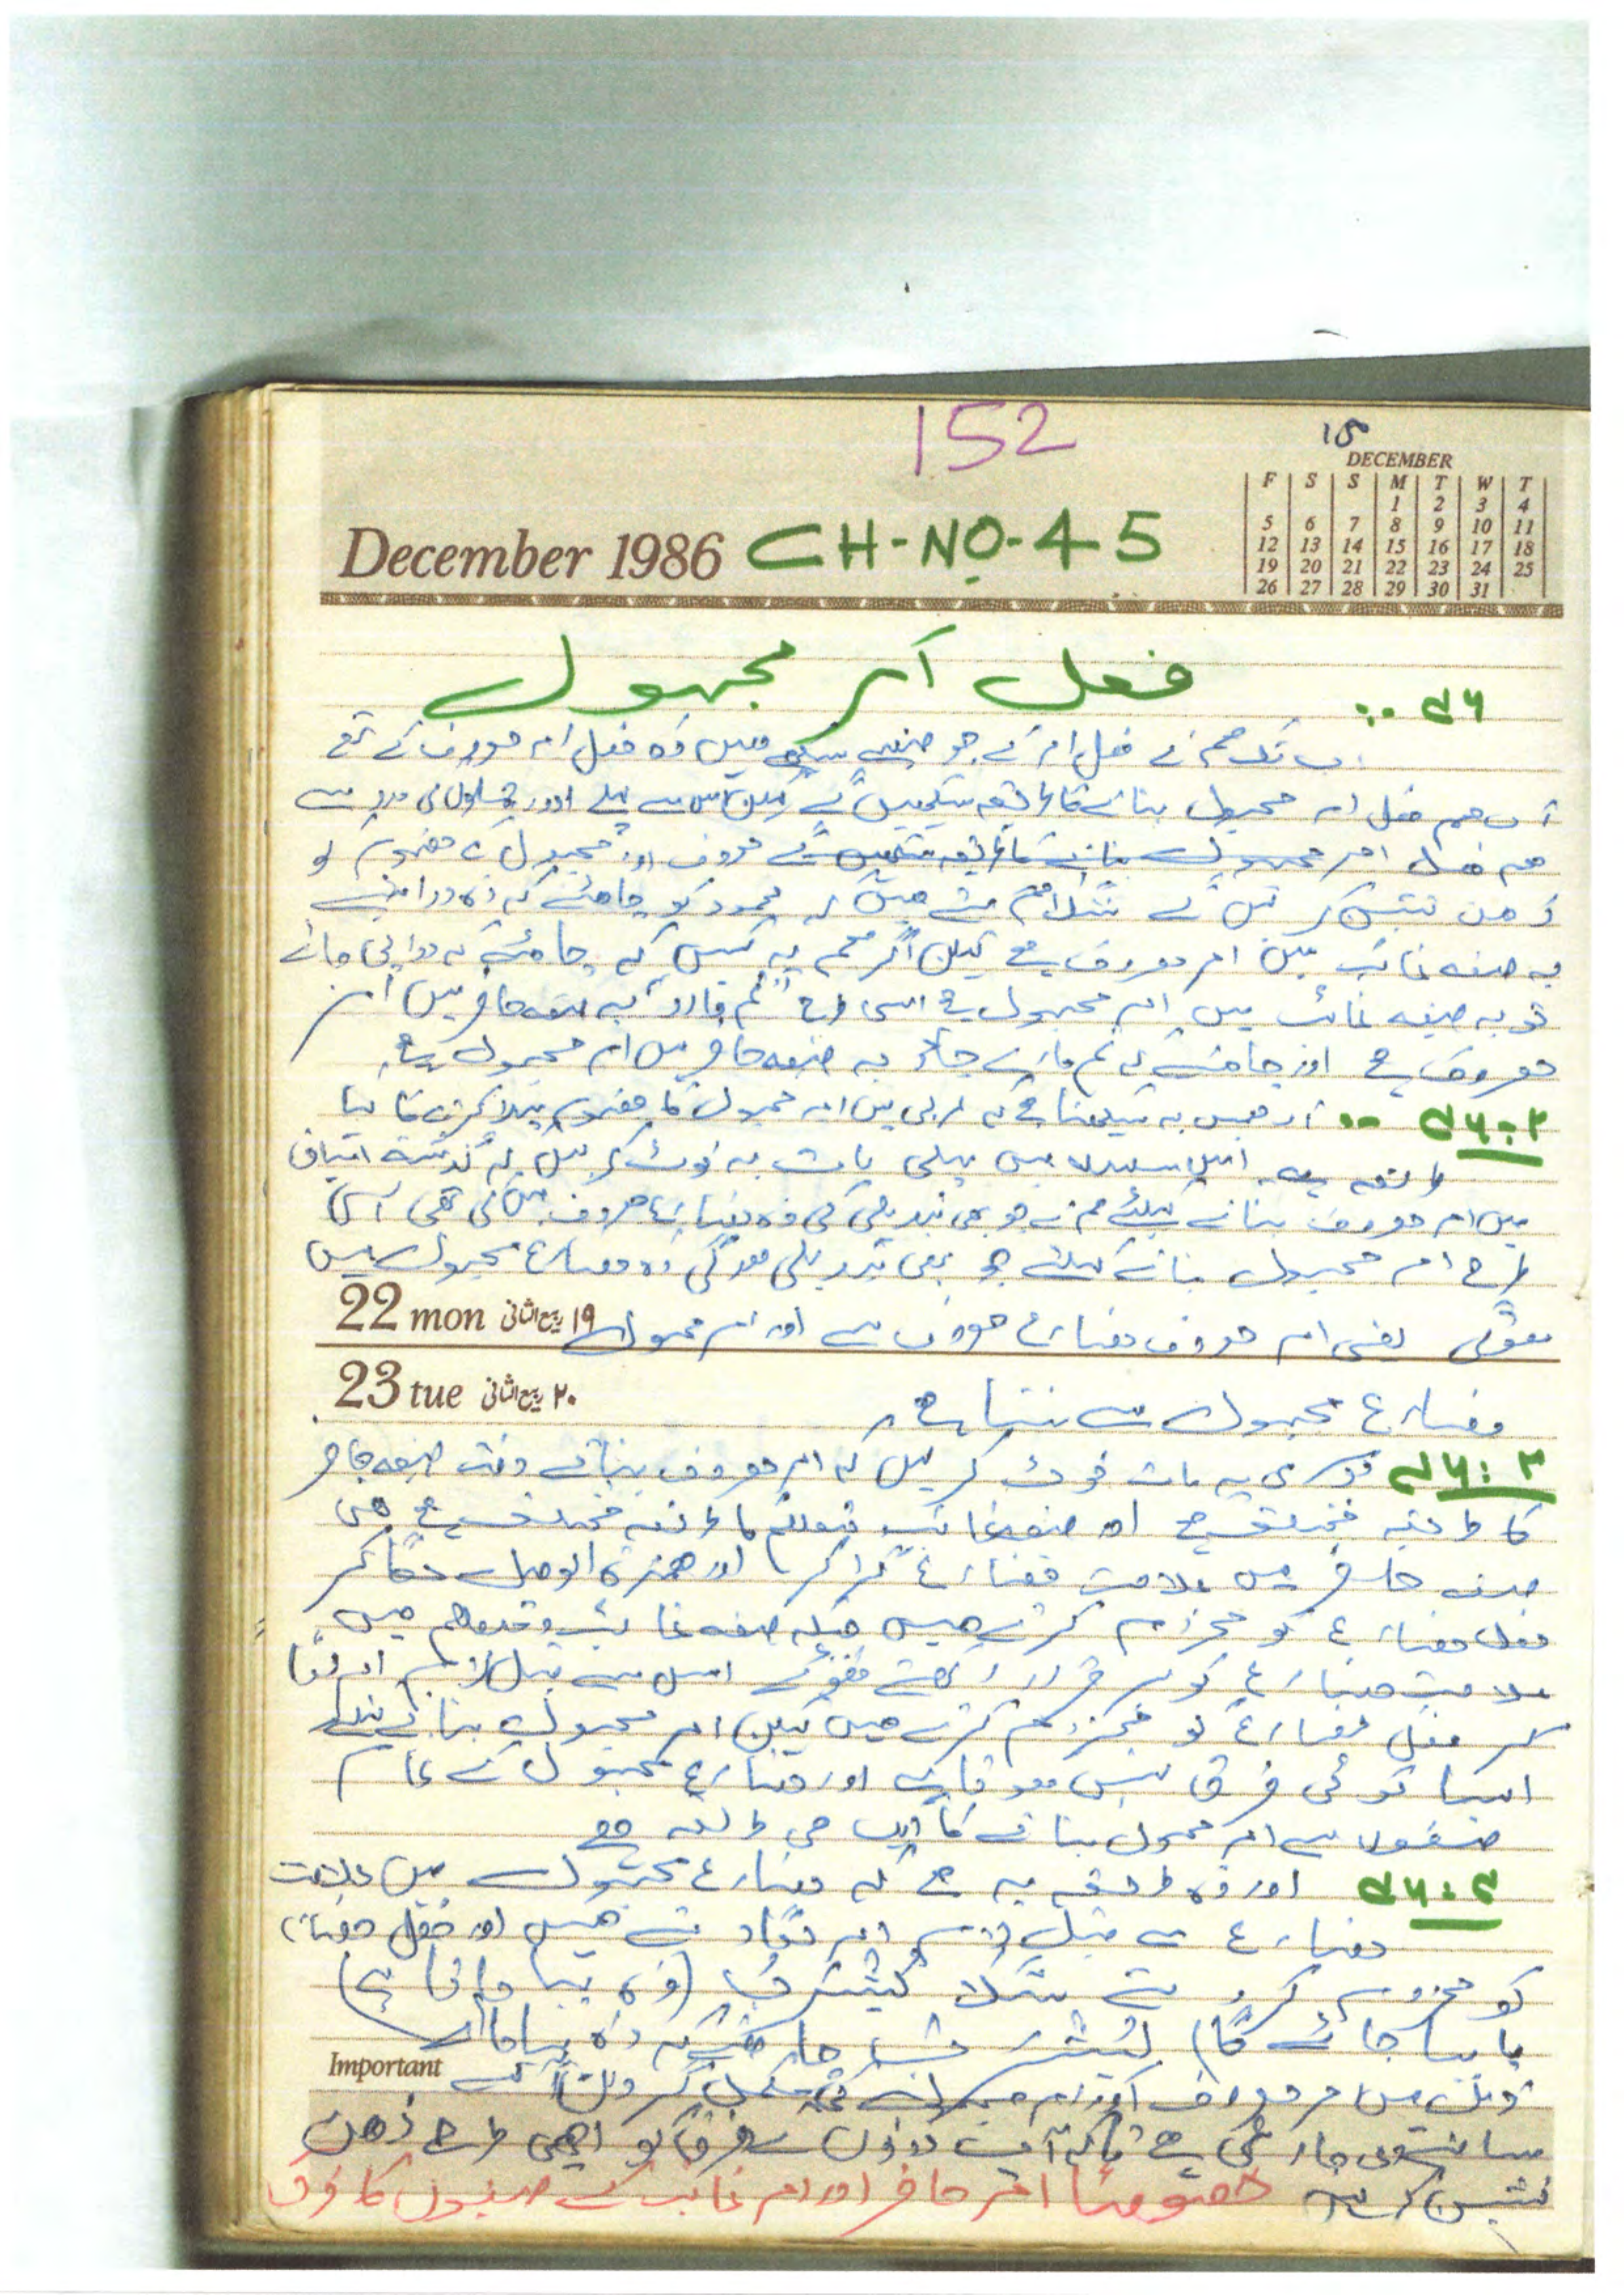 152
15
DECEMBER
F S S M T W T
1 2 3 4
5 6 7 8 9 10 11
12 13 14 15 16 17 18
19 20 21 22 23 24 25
26 27 28 29 30 31
December 1986 CH-NO-45
فعل امر مجہول
اب تک ہم نے فعل امر کے جو صیغے سیکھے ہیں وہ فعل امر معروف کے تھے
اب ہم فعل امر مجہول بنانے کا طریقہ سیکھیں گے لیکن اس سے پہلے اردو کی مدد سے
ہم فعل امر مجہول بنانے کا طریقہ سیکھیں گے معروف اور مجہول کے مفہوم کو
ذہن نشین کر لیں گے مثلا ہم کہتے ہیں کہ محمود کو چاہئے کہ وہ دوا پئے
یہ صیغہ غائب میں امر معروف ہے لیکن اگر ہم یہ کہیں کہ چاہئے کہ دوا پی جائے
تو یہ صیغہ غائب میں امر مجہول ہے اسی طرح "تم مارو" یہ صیغہ حاضر میں امر
معروف ہے اور چاہئے کہ تم مارے جاؤ یہ صیغہ حاضر میں امر مجہول ہے
اب ہمیں یہ سیکھنا ہے کہ عربی میں امر مجہول کا مفہوم پیدا کرنے کا کیا
طریقہ ہے اس سلسلہ میں پہلی بات یہ نوٹ کر لیں کہ گذشتہ اسباق
میں امر معروف بنانے کیلئے ہم نے جو بھی تبدیلی کی وہ مضارع معروف میں کی تھی اسی
طرح امر مجہول بنانے کیلئے جو بھی تبدیلی ہوگی وہ مضارع مجہول میں
22 mon ١٩ ربیع الثانی
ہوگی یعنی امر معروف مضارع معروف سے اور امر مجہول
23 tue ٢٠ ربیع الثانی
مضارع مجہول سے بنتا ہے
دوسری یہ بات نوٹ کر لیں کہ امر معروف بناتے وقت صیغہ حاضر
کا طریقہ مختلف ہے اور صیغہ غائب و متکلم کا طریقہ مختلف ہے یعنی
صیغہ حاضر میں علامت مضارع گرا کر اور ھمزۃ الوصل لگا کر
فعل مضارع کو مجزوم کرتے ہیں جبکہ صیغہ غائب و متکلم میں
علامت مضارع کو برقرار رکھتے ہوئے اس سے قبل لام امر لگا
کر فعل مضارع کو مجزوم کرتے ہیں لیکن امر مجہول بنانے کیلئے
ایسا کوئی فرق نہیں ہوتا ہے اور مضارع مجہول کے تمام
صیغوں سے امر مجہول بنانے کا ایک ہی طریقہ ہے
اور وہ طریقہ یہ ہے کہ مضارع مجہول میں علامت
مضارع سے قبل لام امر لگا دیتے ہیں اور فعل مضارع
کو مجزوم کر دیتے مثلا یُشْرَبُ (وہ پیا جاتا ہے
یا پیا جائے گا) لِیُشْرَبْ چاہئے کہ وہ پیا جائے
Important
ذیل میں امر معروف اور امر مجہول کی مکمل گردان آمنے
سامنے دی جا رہی ہے تاکہ آپ دونوں کے فرق کو اچھی طرح ذہن
نشین کر لیں خصوصا امر حاضر اور امر غائب کے صیغوں کا فرق